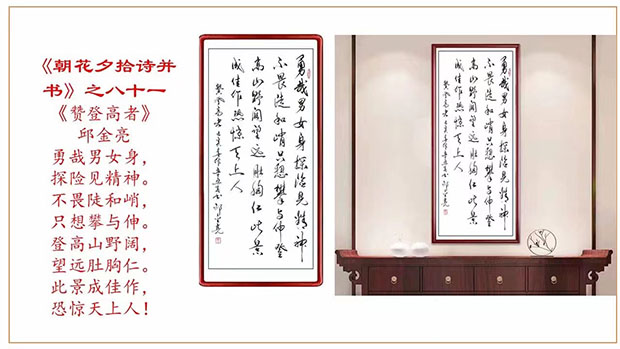 《朝花夕拾诗并
书》之八十一
《赞登高者》
邱金亮
勇哉男女身，
探险见精神。
不畏陡和峭，
只想攀与伸。
登高山野阔，
望远肚胸仁。
此景成佳作，
恐惊天上人！
勇哉男女身探险见精神
不畏陡和峭只想攀与伸登
高山野阔望远肚胸仁此景
成佳作恐惊天上人
赞登高者
邱金亮
勇哉男女身探险见精神
不畏陡和峭只想攀与伸登
高山野阔望远肚胸仁此景
成佳作恐惊天上人
赞登高者
邱金亮